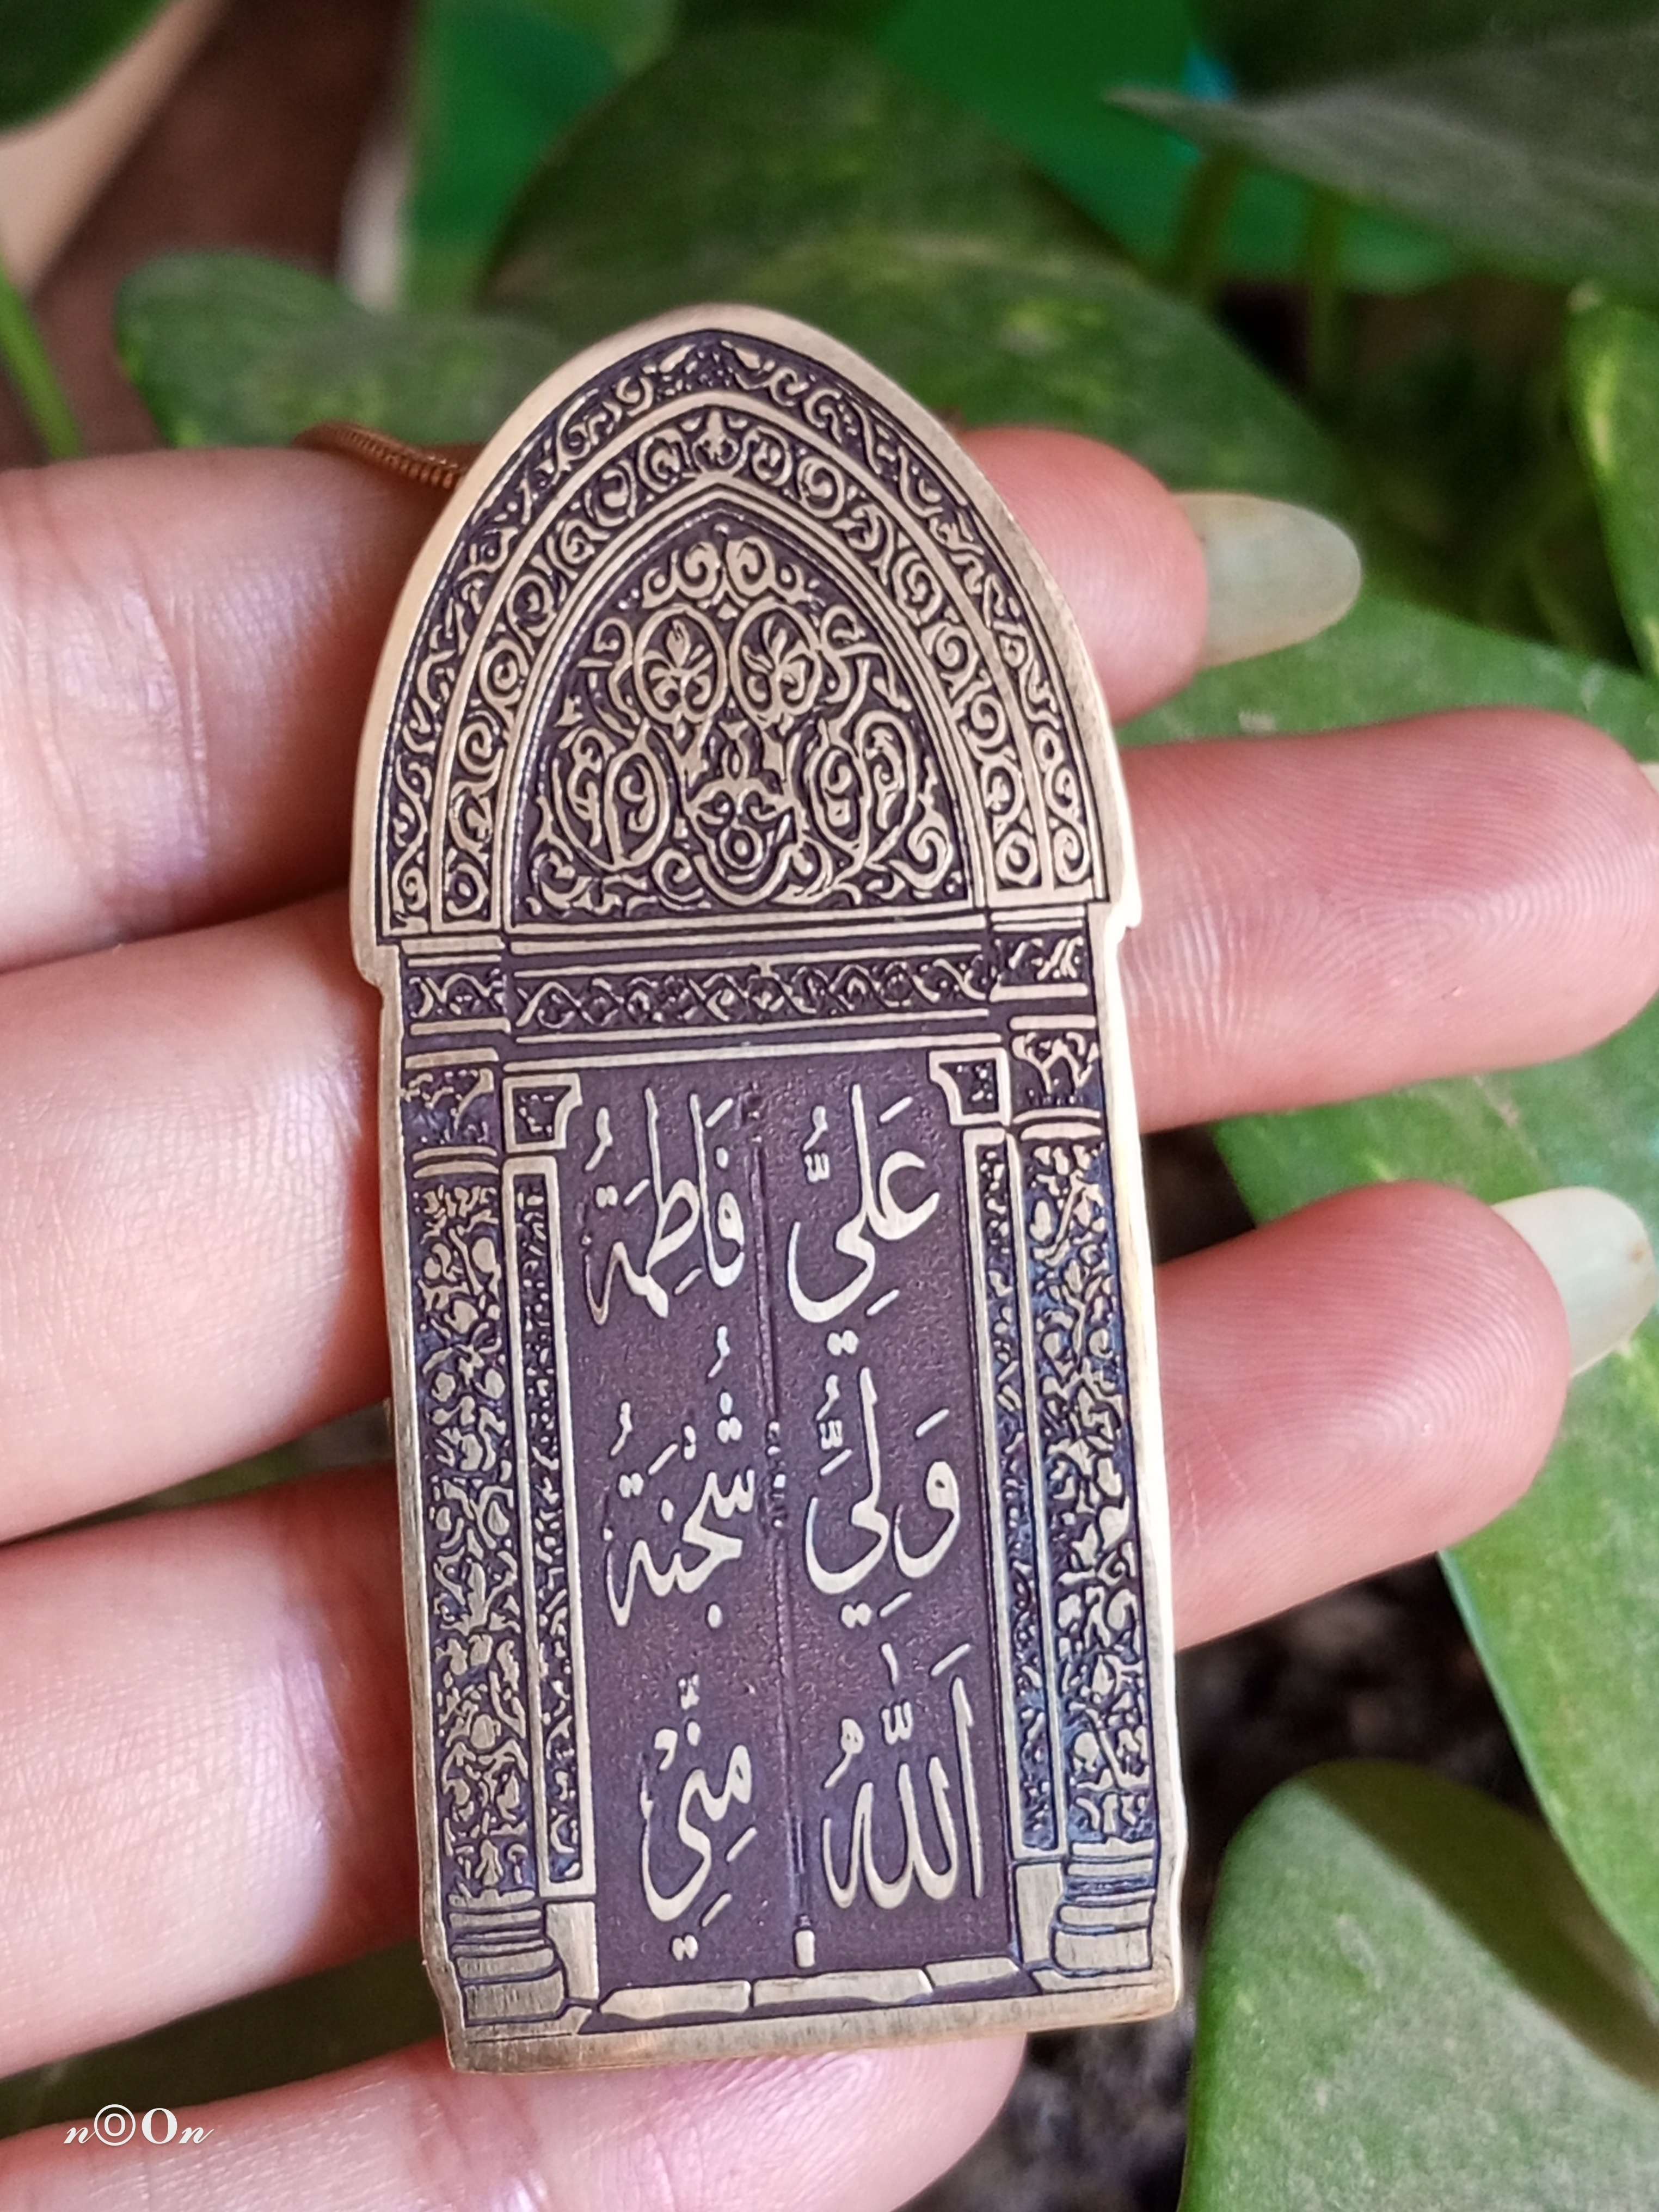 عَلِيٌّ
وَلِيُّ
اَللّٰهُ
فَاطِمَةُ
شُجْنَةُ
مِنِّي
n©On